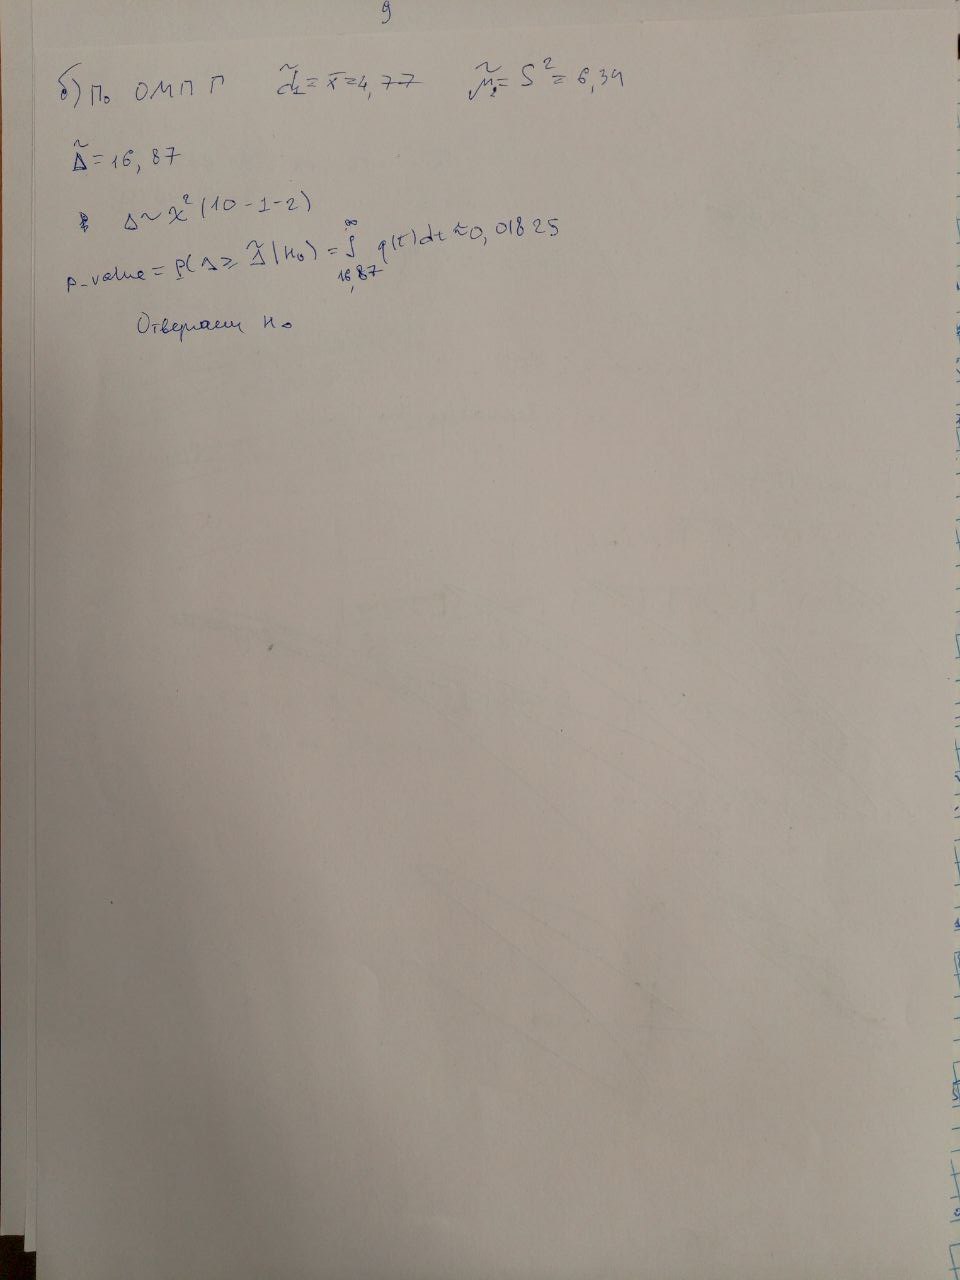 9
б) По ОМПГ α̃₁ = x̄ = 4,77 μ̃₂ = S² = 6,34
Δ̃ = 16,87
Δ ~ χ²(10-1-2)
p-value = P(Δ ≥ Δ̃ | H₀) = ∫_{16,87}^{∞} q(t)dt ≈ 0,01825
Отвергаем H₀